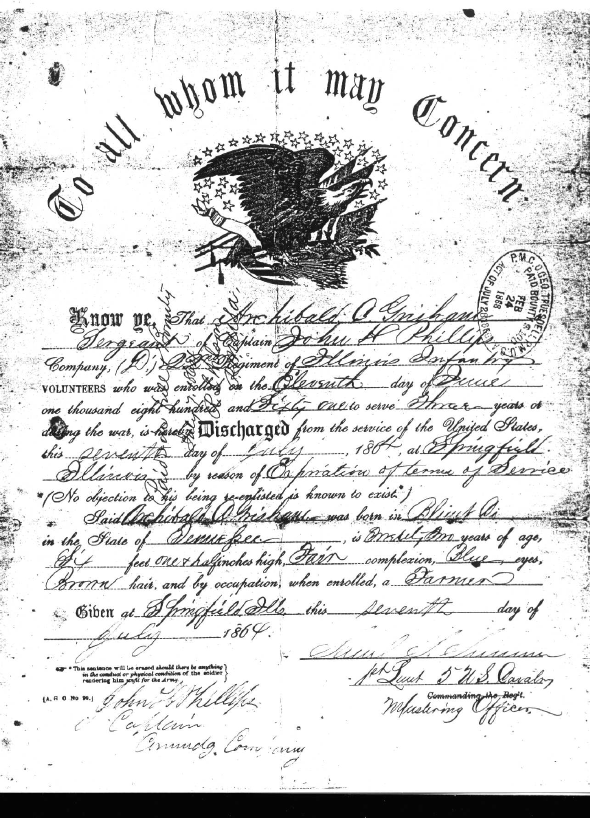 To all whom it may Concern:
Know ye, That Archibald C Grisham
Sergeant of Captain John H Phillips
Company, (D,) Regiment of Illinois Infantry
VOLUNTEERS who was enrolled on the Eleventh day of June
one thousand eight hundred and Sixty one to serve Three years or
during the war, is hereby Discharged from the service of the United States,
this seventh day of July , 1864, at Springfield
Illinois by reason of Expiration of term of Service
(No objection to his being re-enlisted is known to exist.*)
Said Archibald C Grisham was born in
in the State of Tennessee , is years of age,
Six feet one & half inches high, Fair complexion, Blue eyes,
Brown hair, and by occupation, when enrolled, a Farmer
Given at Springfield Ills this seventh day of
July 1864.
1st Lieut 5 U.S. Cavalry
Commanding the Reg't.
Mustering Officer
* This sentence will be erased should there be anything
in the conduct or physical condition of the soldier
rendering him unfit for the Army.
[A. G. O. No 99.]
John H Phillips
Captain
Commdg. Company
PAID BOUNTY
ACT OF JULY 28
FEB
24
1868